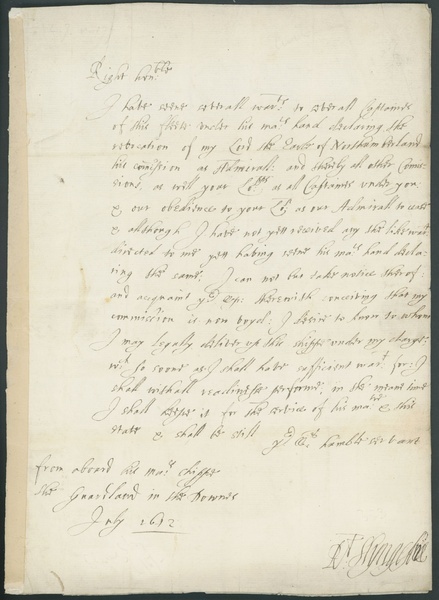 Right hon:ble
I have seene severall warts to severall Captaines
of this fleete under his mats hand declaring the
revocation of my Lord the Earle of Northumberland
his comission as Admirall: and therby all other Comis-
sions, as well your Lopps as all Captaines under you,
& our obedience to your Lop: as our Admirall to cease
& allthough I have not yett received any the like wart
directed to me yett having seene his mats hand decla-
ring the same. I can not but take notice therof:
and acquaint yor Lopp: therewith conceiving that my
commission is now voyd: I desire to know to whom
I may legally deliver up this shippe under my charge:
wch so soone as I shall have sufficient wart for: I
shall withall readinesse performe, in the meane time
I shall keepe it for the service of his matie & this
state & shall be still
yor Lops humble servant
from aboord his mats shippe
the Guardland in the Downes
July 1642